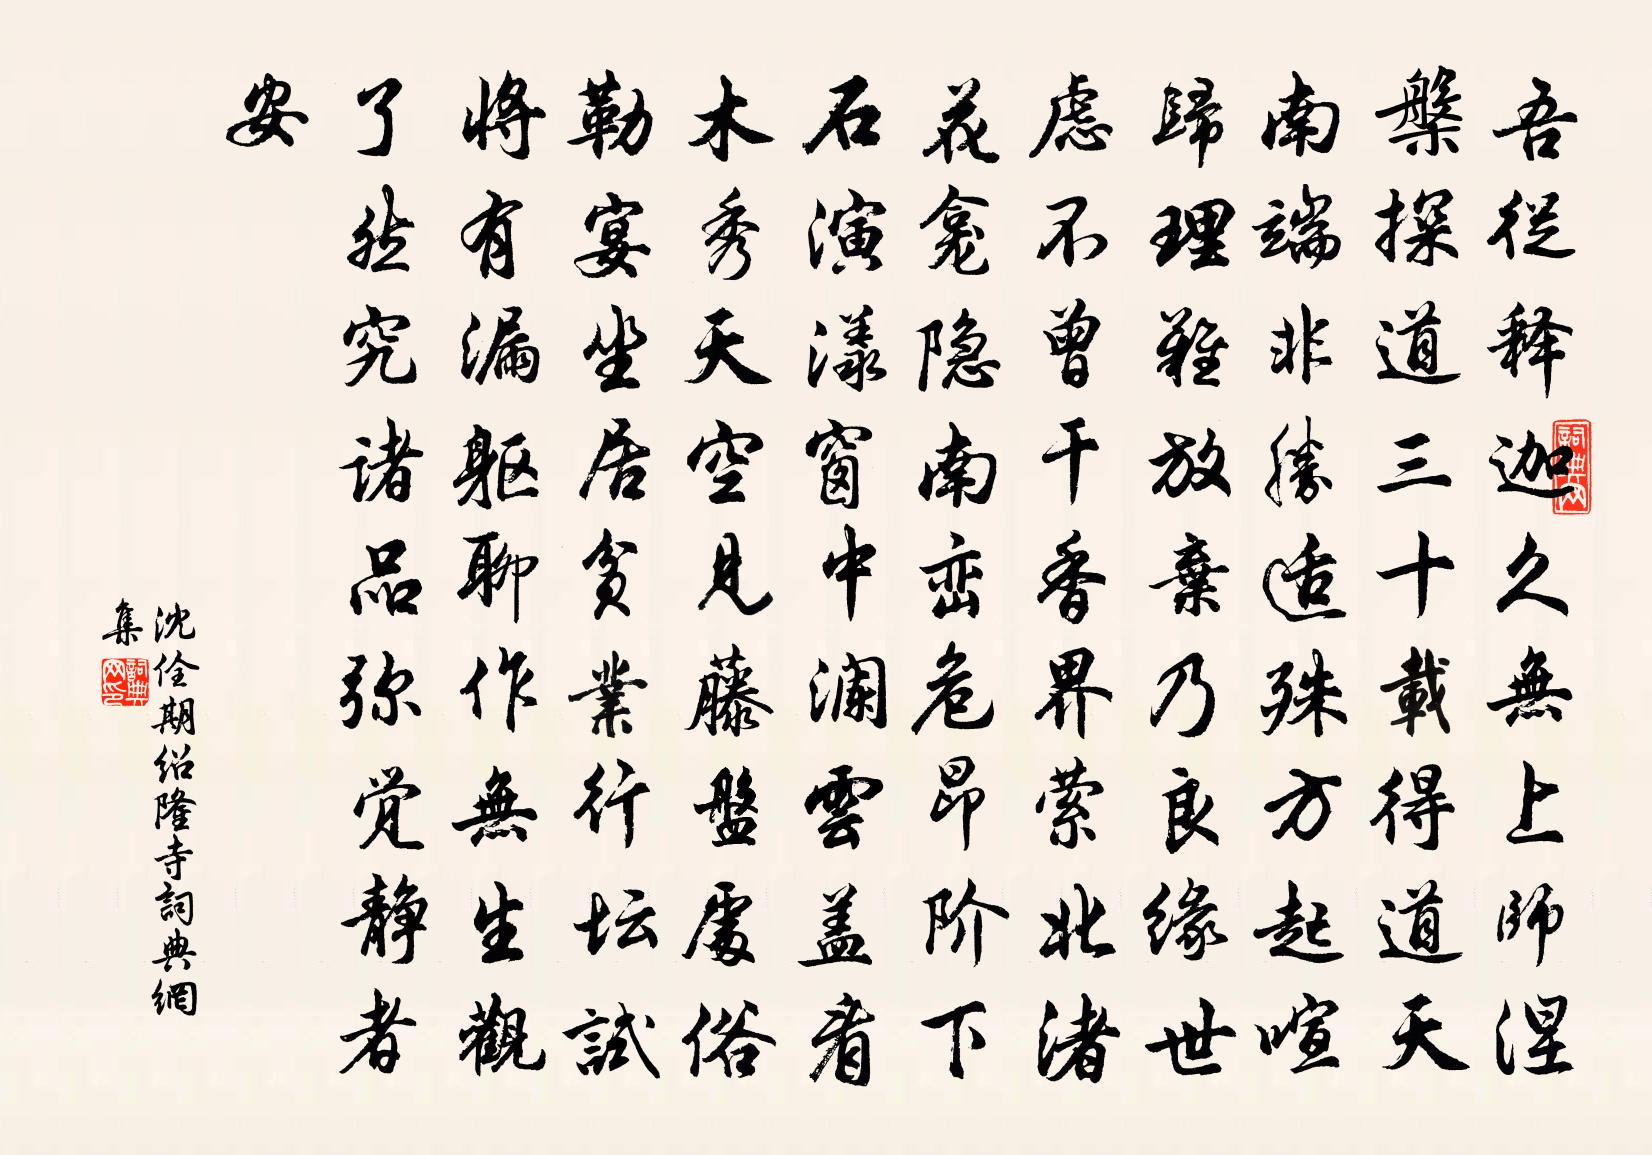 吾從释迦久無上師涅
槃探道三十載得道天
南端非勝适殊方起喧
歸理難放棄乃良缘世
慮不曾干香界萦北渚
花龛隐南峦危昂阶下
石演漾窗中澜雲盖看
木秀天空見藤盤處俗
勒宴坐居貧業行坛試
將有漏躯聊作無生觀
了然究诸品弥觉静者
安
沈佺期绍隆寺詞典網
集
詞典网
詞典网印